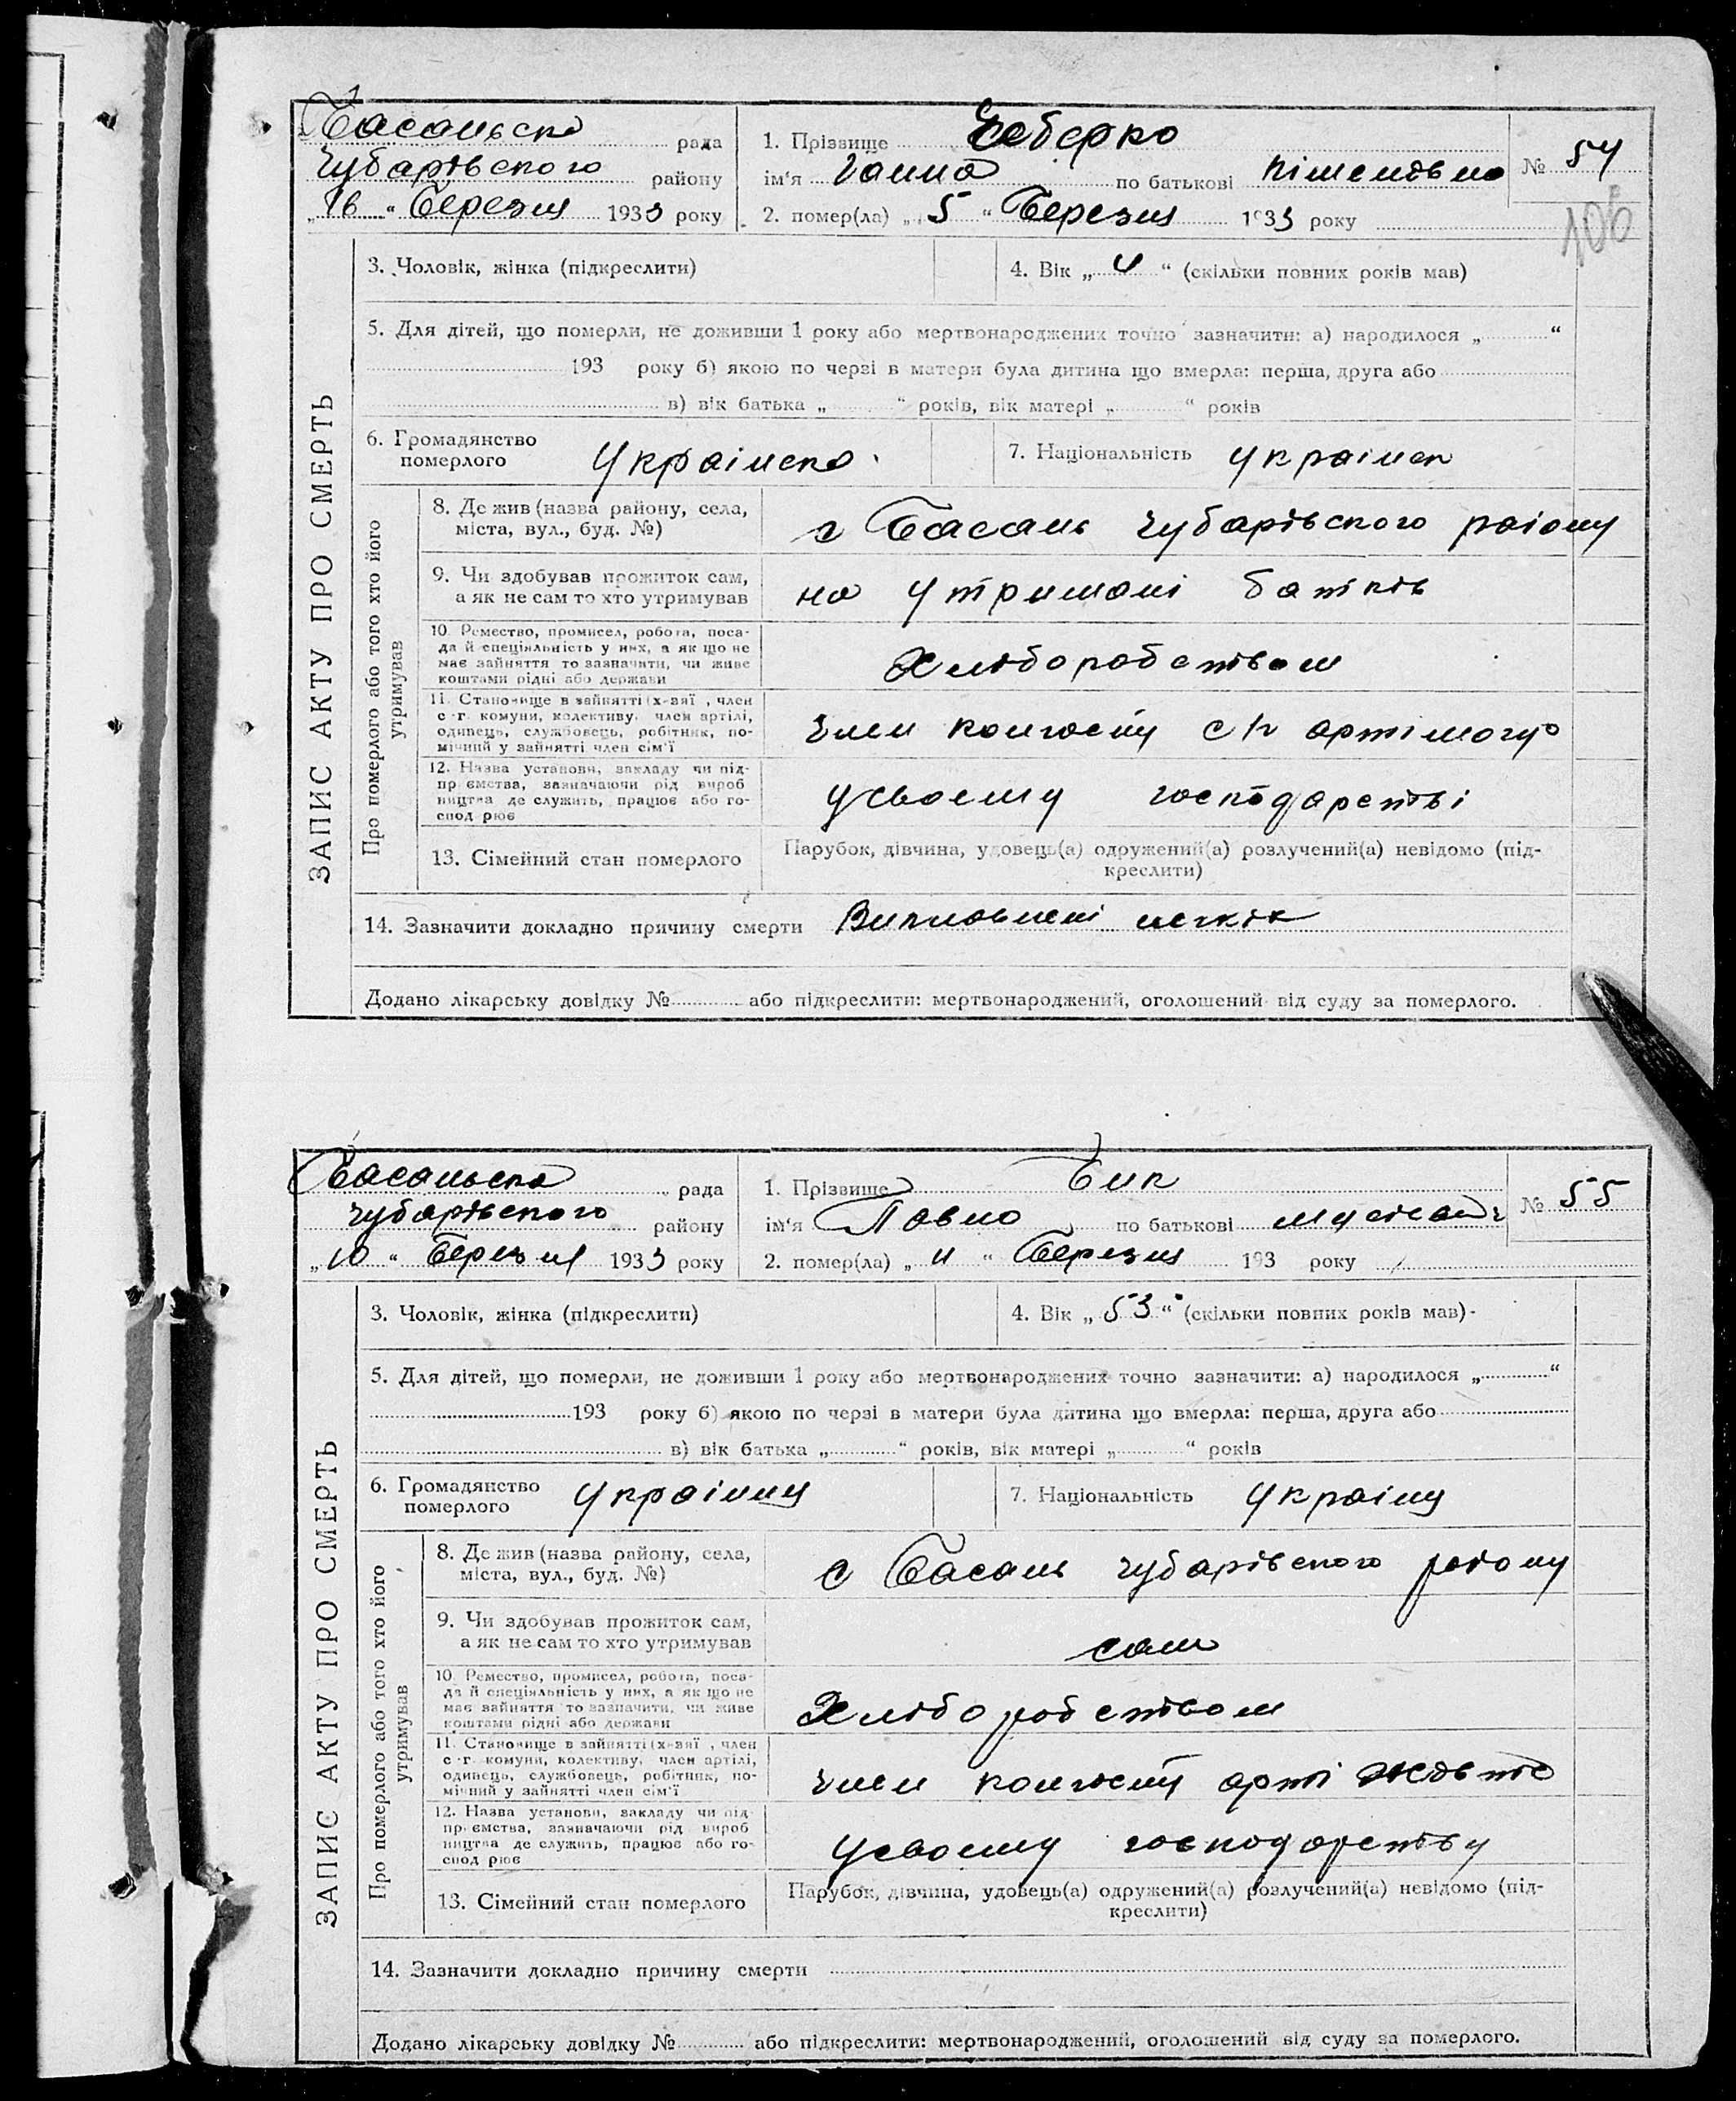 Басанська рада
Чубарівського району
„ 16 “ Березня 1933 року
1. Прізвище
ім‘я Ганна по батькові
2. помер(ла) „ 5 “ Березня 1933 року
№ 54
106
3. Чоловік, жінка (підкреслити)
4. Вік „ 4 “ (скільки повних років мав)
5. Для дітей, що померли, не доживши 1 року або мертвонароджених точно зазначити: а) народилося „ “
193 року б) якою по черзі в матери була дитина що вмерла: перша, друга або
в) вік батька „ “ років, вік матері „ “ років
6. Громадянство
померлого Украінска
7. Національність украінск
ЗАПИС АКТУ ПРО СМЕРТЬ
Про померлого або того хто його
утримував
8. Де жив (назва району, села,
міста, вул., буд. №)
с Басань чубарівского раіону
9. Чи здобував прожиток сам,
а як не сам то хто утримував
на утримані батьків
10. Ремество, промисел, робота, поса-
да й спеціяльність у них, а як що не
має зайняття то зазначити, чи живе
коштами рідні або держави
Хліборобством
11. Становище в зайнятті (х-вяї , член
с-г комуни, колективу, член артілі,
одинець, службовець, робітник, по-
мічний у зайнятті член сім‘ї
член колгоспу с/г
12. Назва установи, закладу чи під-
пр ємства, зазначаючи рід вироб
ництва де служить, працює або го-
спод рює
усвоему господарстві
13. Сімейний стан померлого
Парубок, дівчина, удовець(а) одружений(а) розлучений(а) невідомо (під-
креслити)
14. Зазначити докладно причину смерти легких
Додано лікарську довідку № або підкреслити: мертвонароджений, оголошений від суду за померлого.
Басанська рада
чубарівського району
„ 10 “ Березня 1933 року
1. Прізвище Бик
ім‘я Павло по батькові
2. помер(ла) „ “ Березня 193 року
№ 55
3. Чоловік, жінка (підкреслити)
4. Вік „ 53 “ (скільки повних років мав)
5. Для дітей, що померли, не доживши 1 року або мертвонароджених точно зазначити: а) народилося „ “
193 року б) якою по черзі в матери була дитина що вмерла: перша, друга або
в) вік батька „ “ років, вік матері „ “ років
6. Громадянство
померлого
7. Національність
ЗАПИС АКТУ ПРО СМЕРТЬ
Про померлого або того хто його
утримував
8. Де жив (назва району, села,
міста, вул., буд. №)
с Басань чубарівского раіону
9. Чи здобував прожиток сам,
а як не сам то хто утримував
сам
10. Ремество, промисел, робота, поса-
да й спеціяльність у них, а як що не
має зайняття то зазначити, чи живе
коштами рідні або держави
Хліборобством
11. Становище в зайнятті (х-вяї , член
с-г комуни, колективу, член артілі,
одинець, службовець, робітник, по-
мічний у зайнятті член сім‘ї
член колгоспу
12. Назва установи, закладу чи під
пр ємства, зазначаючи рід вироб
ництва де служить, працює або го-
спод рює
усвоему господарству
13. Сімейний стан померлого
Парубок, дівчина, удовець(а) одружений(а) розлучений(а) невідомо (під-
креслити)
14. Зазначити докладно причину смерти
Додано лікарську довідку № або підкреслити: мертвонароджений, оголошений від суду за померлого.